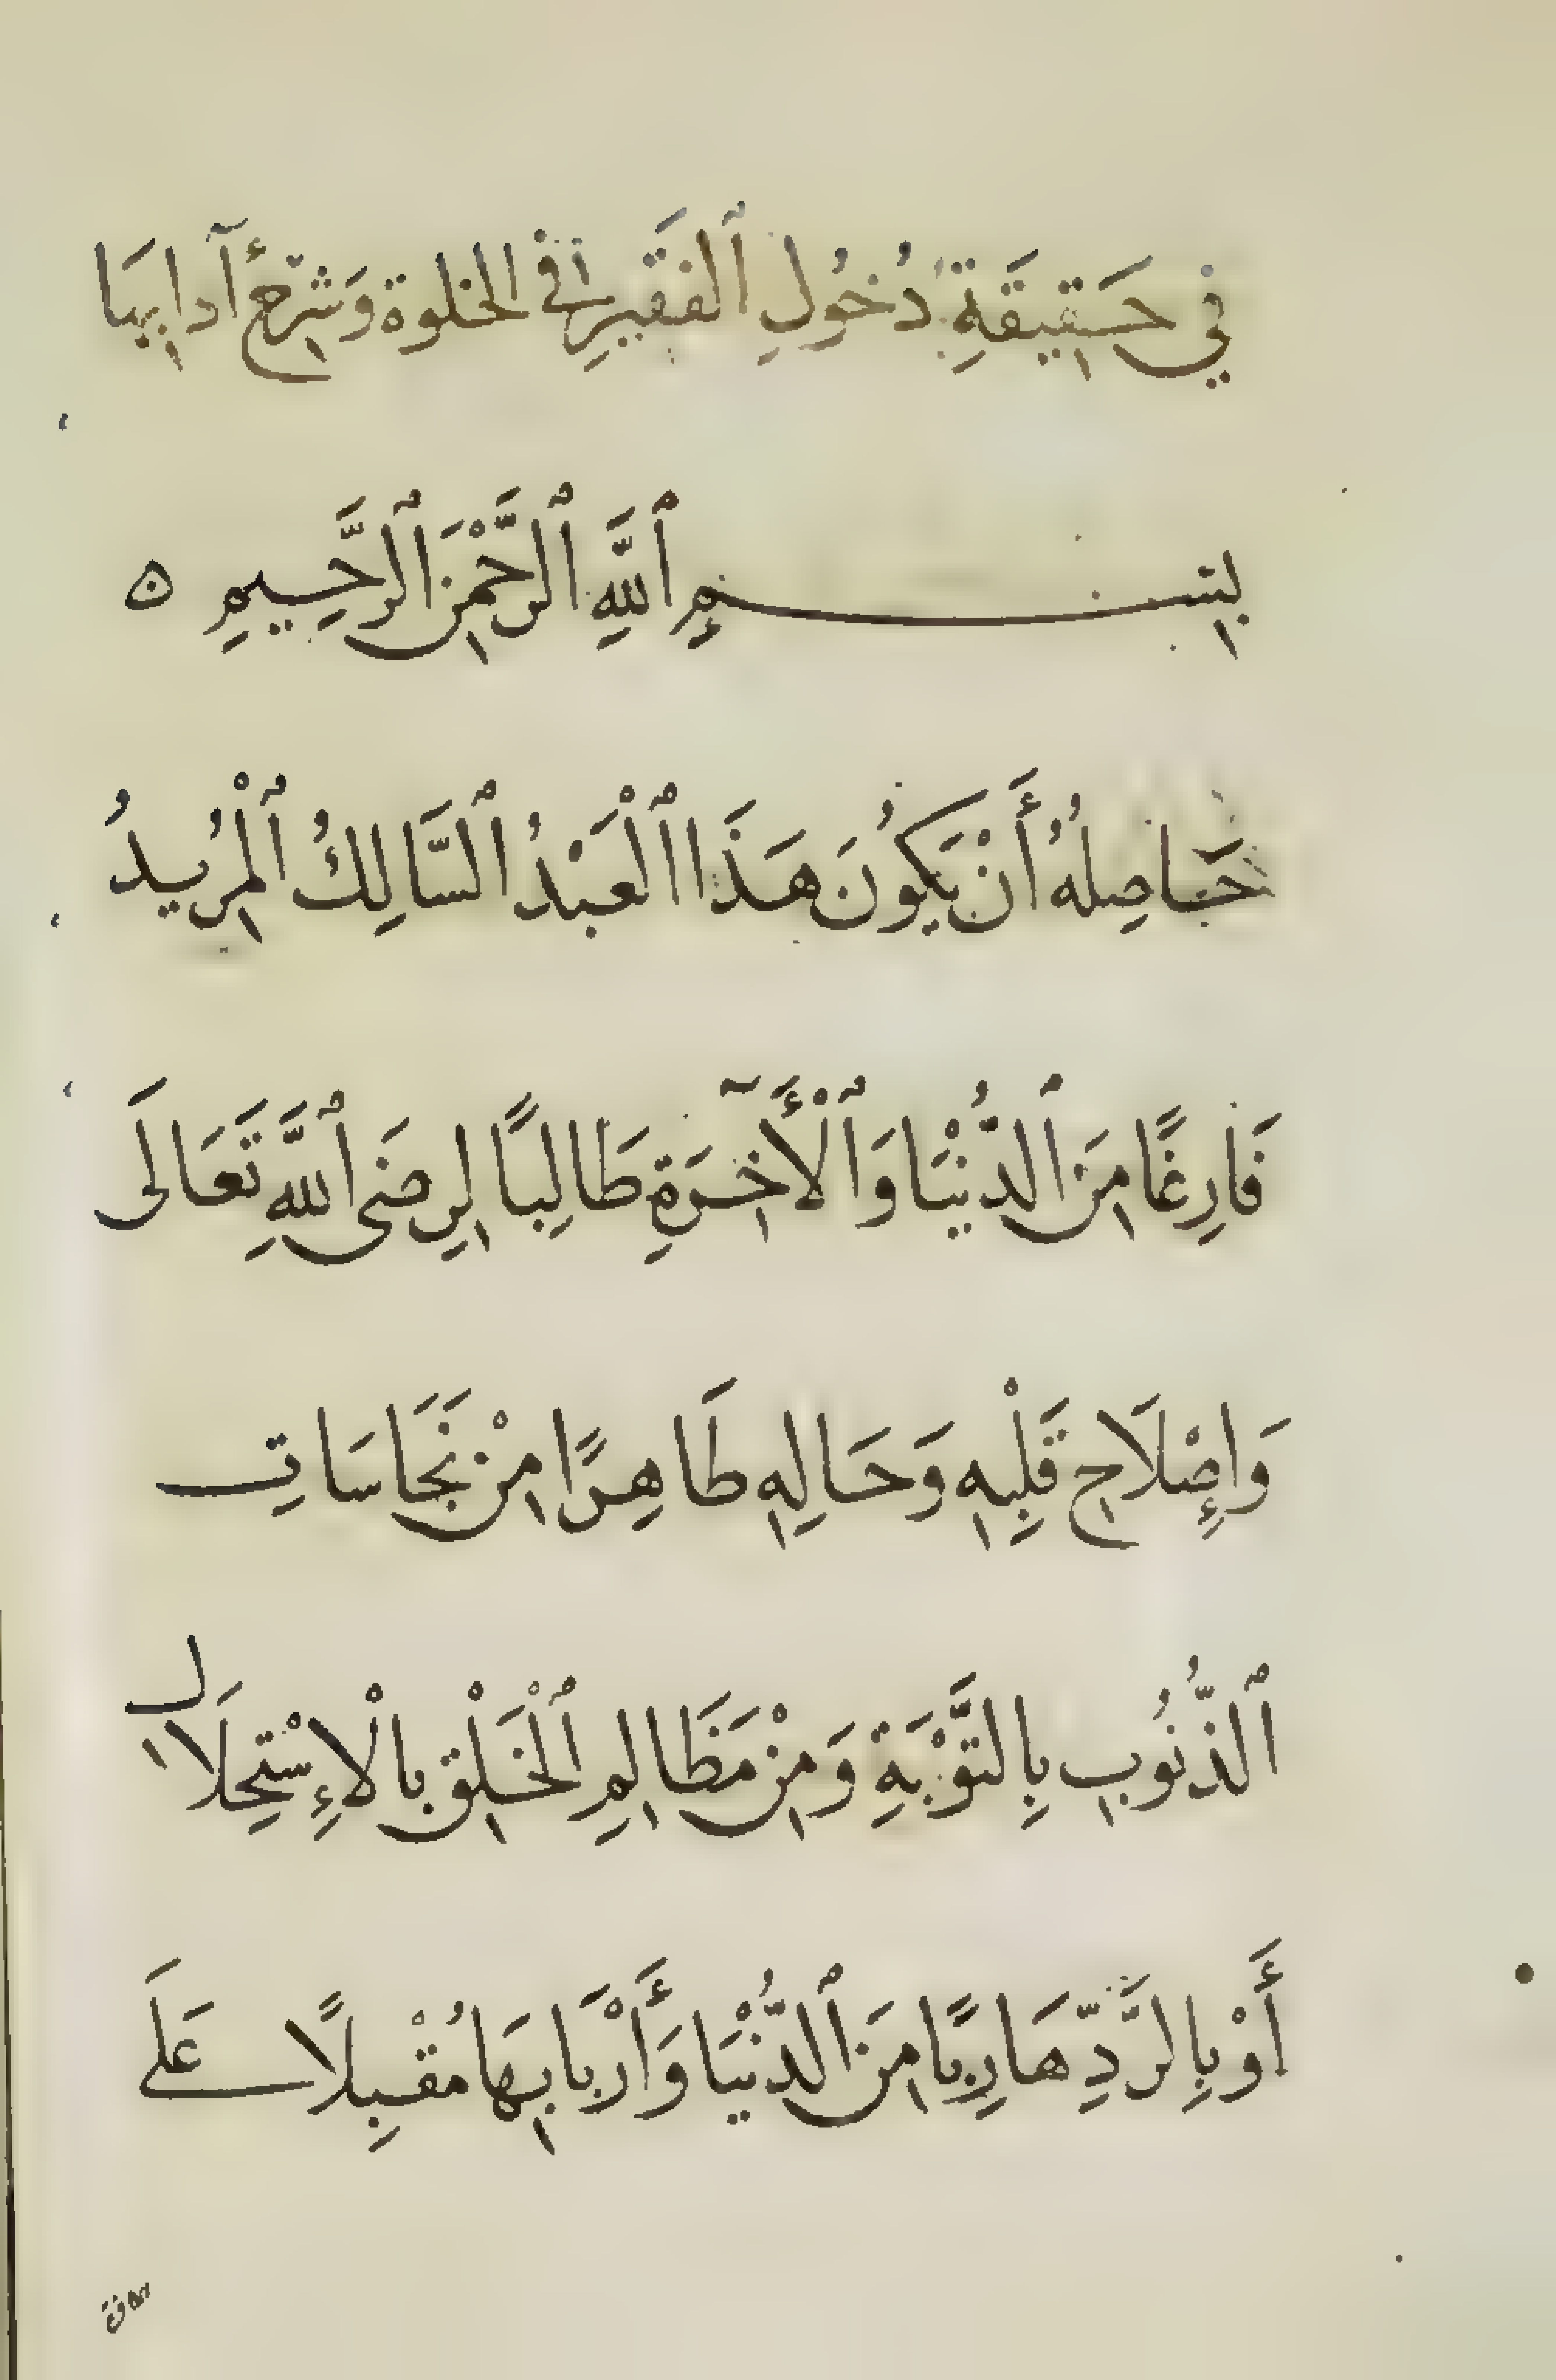 فِي حَقِيقَةِ دُخُولِ ٱلفَقِيرِ فِي الخلوة وَشَرْحِ آدابِهَا
بِسْمِ ٱللَّهِ ٱلرَّحْمَنِ ٱلرَّحِيمِ ○
حَاصِلُهُ أَنْ يَكُونَ هَذَا ٱلْعَبْدُ ٱلسَّالِكُ ٱلْمُرِيدُ
فَارِغًا مِنَ ٱلدُّنْيَا وَٱلْأَٓخِرَةِ طَالِبًا لِرِضَى ٱللَّهِ تَعَالَى
وَإِصْلَاحِ قَلْبِهِ وَحَالِهِ طَاهِرًا مِنْ نَجَاسَاتِ
ٱلذُّنُوبِ بِالتَّوْبَةِ وَمِنْ مَظَالِمِ ٱلْخَلْقِ بِالْإِسْتِحْلَالِ
أَوْ بِالرَّدِّ هَارِبًا مِنَ ٱلدُّنْيَا وَأَرْبَابِهَا مُقْبِلًا عَلَى